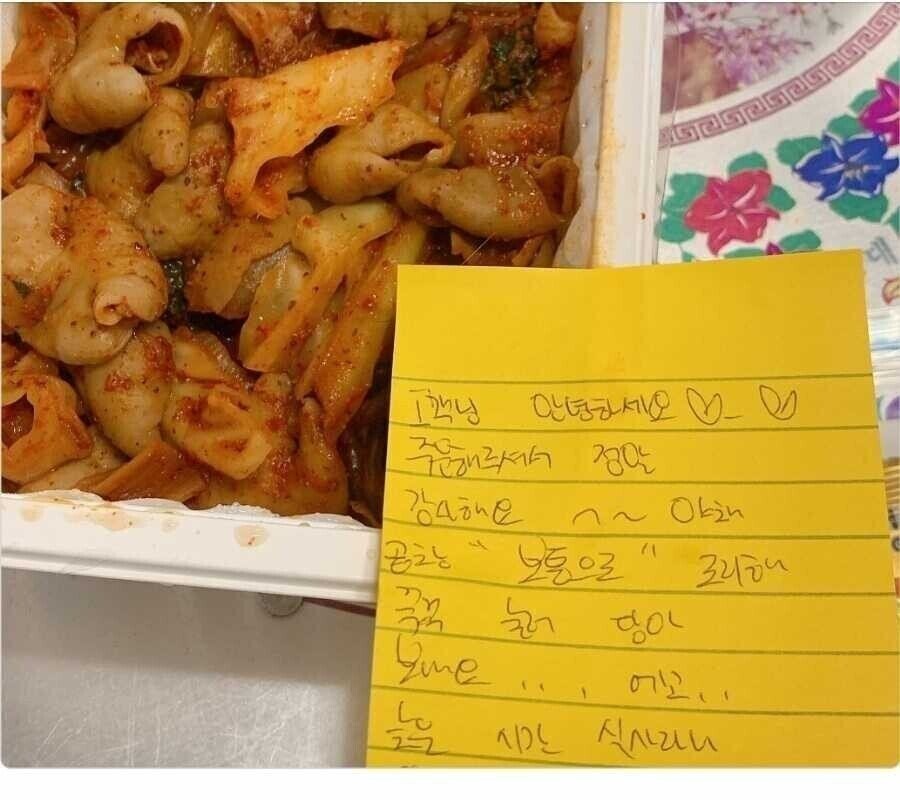 고객님 안녕하세요♡_♡
주문해주셔서 정말
감사해요 ~~ 야채
곱창 "보통으로" 조리해
꾹꾹 눌러 담아
보내요 ... 에고..
늦은 시간 식사라니